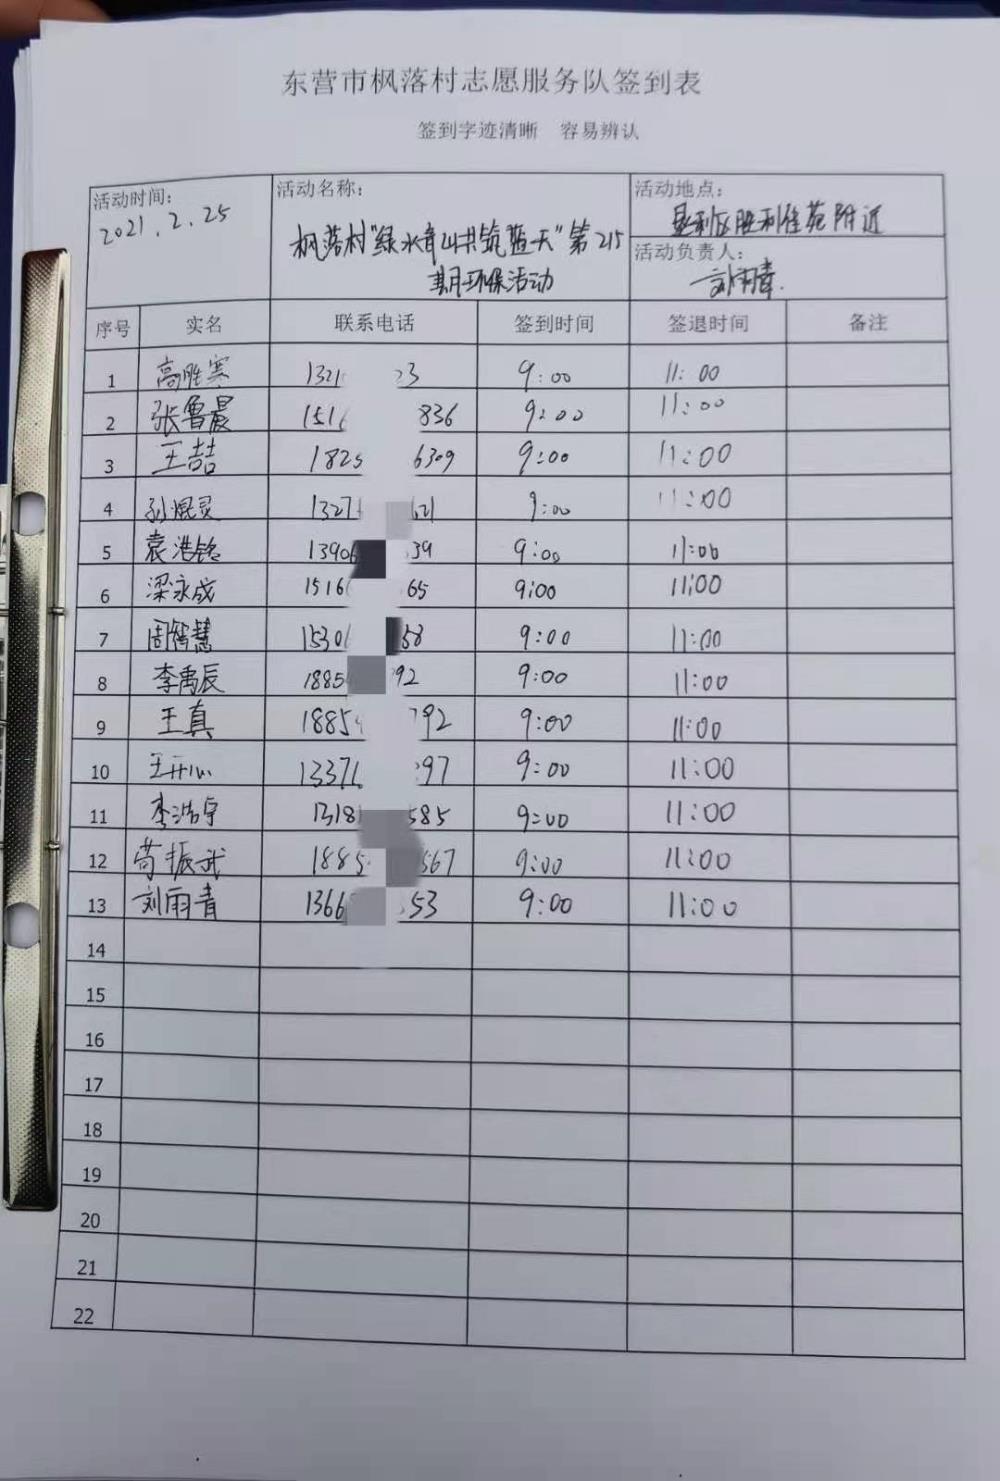 东营市枫落村志愿服务队签到表
签到字迹清晰 容易辨认
活动时间：
2021.2.25
活动名称：
枫落村"绿水青山共筑蓝天"第215
期环保活动
活动地点：
垦利区胜利佳苑附近
活动负责人：
刘雨青
序号 实名 联系电话 签到时间 签退时间 备注
1 高胜寒 1321 23 9:00 11:00
2 张鲁晨 1516 836 9:00 11:00
3 王喆 1825 6309 9:00 11:00
4 孙焜灵 1327 621 9:00 11:00
5 袁浩铭 1390 39 9:00 11:00
6 梁永成 1516 65 9:00 11:00
7 周智慧 1530 58 9:00 11:00
8 李禹辰 1885 92 9:00 11:00
9 王真 1885 792 9:00 11:00
10 王开心 1337 97 9:00 11:00
11 李浩宇 1318 585 9:00 11:00
12 苟振武 1885 567 9:00 11:00
13 刘雨青 1366 53 9:00 11:00
14
15
16
17
18
19
20
21
22